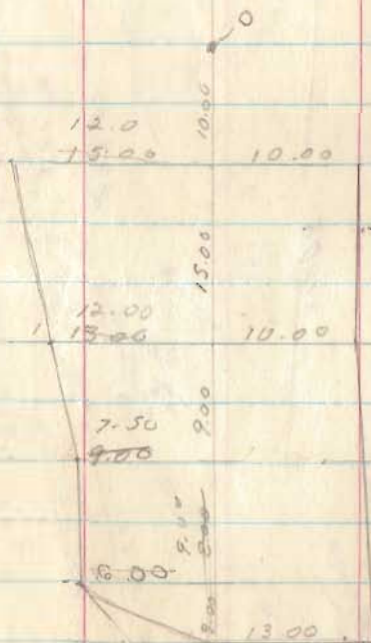 O
10.00
12.0
15.00 10.00
15.00
12.00
1 13.00 10.00
9.00
7.50
9.00
9.00
8.00
6.00
13.00